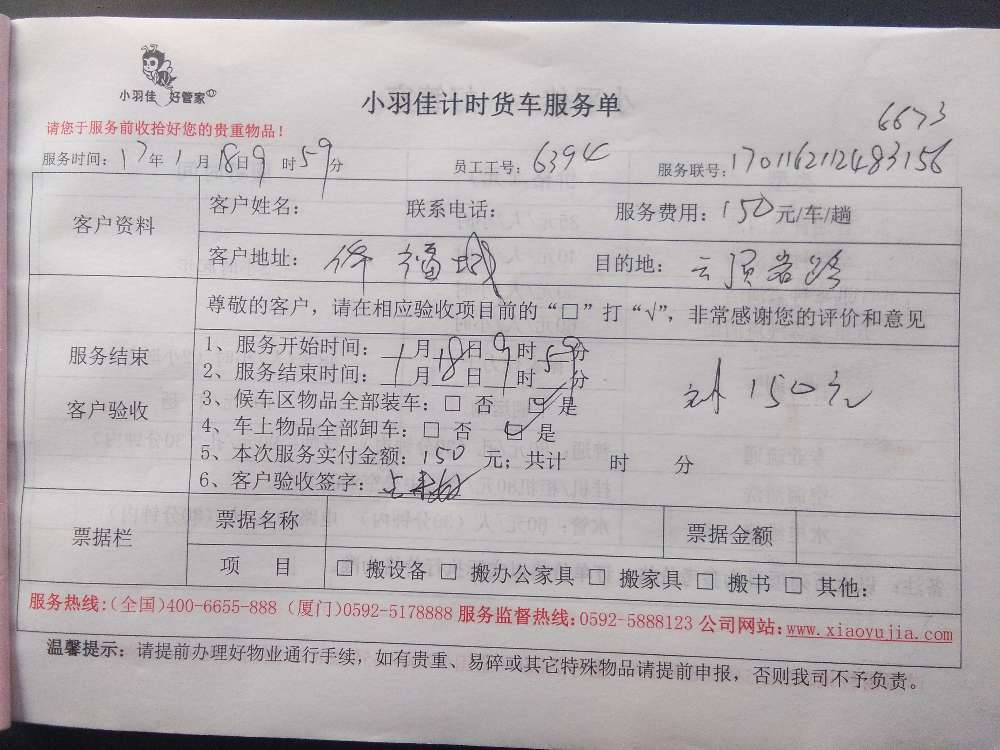 小羽佳 好管家
小羽佳计时货车服务单
6673
请您于服务前收拾好您的贵重物品！
服务时间：17年1月18日9时59分 员工工号：6394 服务联号：170116212483156
客户资料 客户姓名： 联系电话： 服务费用：150元/车/趟
客户地址： 目的地：云顶岩路
尊敬的客户，请在相应验收项目前的“□”打“√”，非常感谢您的评价和意见
服务结束
客户验收
1、服务开始时间：1月18日9时59分
2、服务结束时间：__月__日__时__分
150元
3、候车区物品全部装车：□ 否 □ 是
4、车上物品全部卸车：□ 否 □ 是
5、本次服务实付金额：150 元；共计 时 分
6、客户验收签字：
票据栏 票据名称 票据金额
项 目 □ 搬设备 □ 搬办公家具 □ 搬家具 □ 搬书 □ 其他：
服务热线：（全国）400-6655-888（厦门）0592-5178888 服务监督热线：0592-5888123 公司网站：www.xiaoyujia.com
温馨提示：请提前办理好物业通行手续，如有贵重、易碎或其它特殊物品请提前申报，否则我司不予负责。